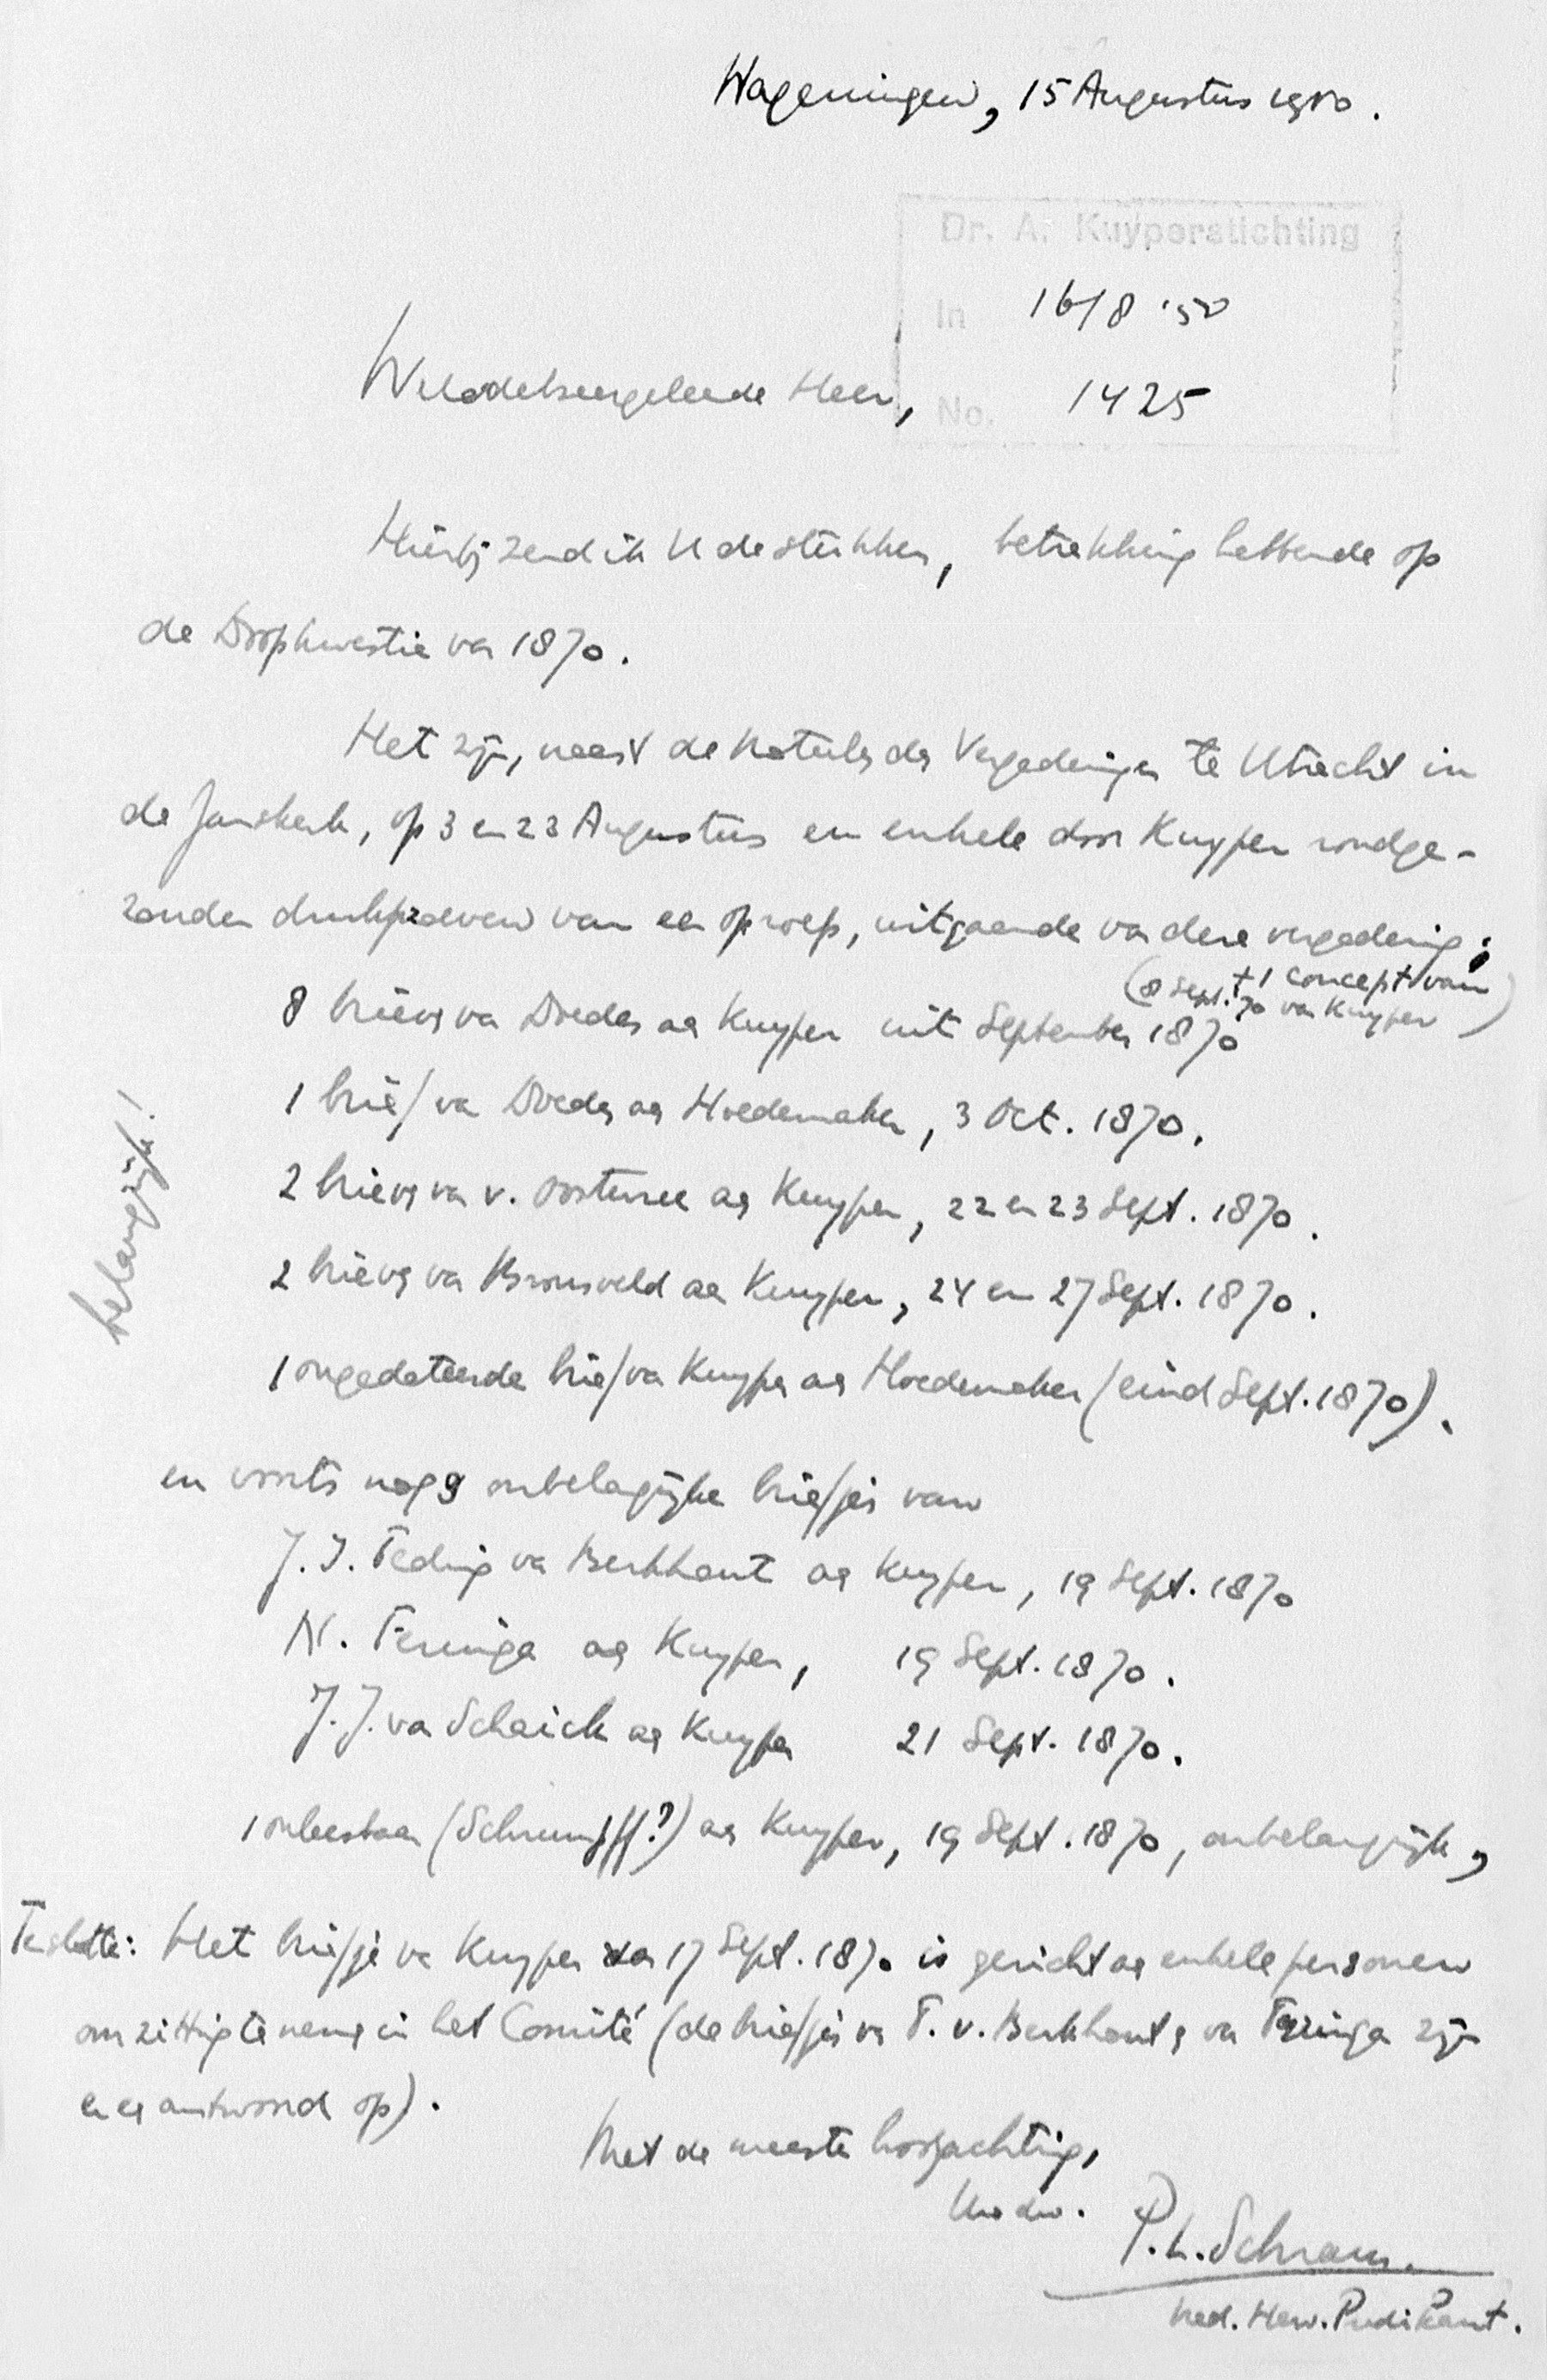 Wageningen, 15 Augustus 1950.
Dr. A. Kuyperstichting
In 16/8 '50
No. 1425
Weledelzeergeleerde Heer,
Hierbij zend ik U de stukken, betrekking hebbende op
de Doopkwestie van 1870.
Het zijn, naast de Notulen der Vergaderingen te Utrecht in
de Janskerk, op 3 en 23 Augustus en enkele door Kuyper rondge-
zonden drukproeven van een oproep, uitgaande van deze vergadering;
8 brieven van Doedes aan Kuyper uit September 1870
(+ 1 concept van
8 Sept. 70 van Kuyper)
1 brief van Doedes aan Hoedemaker, 3 Oct. 1870.
2 brieven van v. Oosterzee aan Kuyper, 22 en 23 Sept. 1870.
2 brieven van Bronsveld aan Kuyper, 24 en 27 Sept. 1870.
1 ongedateerde brief van Kuyper aan Hoedemaker (eind Sept. 1870).
belangrijk!
en voorts nog 9 onbelangrijke briefjes van
J. J. Teding van Berkhout aan Kuyper, 19 Sept. 1870
N. Feringa aan Kuyper, 19 Sept. 1870.
J. J. van Schaick aan Kuyper 21 Sept. 1870.
1 onleesbaar (Schrumpff?) aan Kuyper, 19 Sept. 1870, onbelangrijk,
Tenslotte: Het briefje van Kuyper van 17 Sept. 1870 is gericht aan enkele personen
om zitting te nemen in het Comité (de briefjes van T. v. Berkhout en van Feringa zijn
er een antwoord op).
Met de meeste hoogachting,
Uw dw.
P. L. Schram.
Ned. Herv. Predikant.